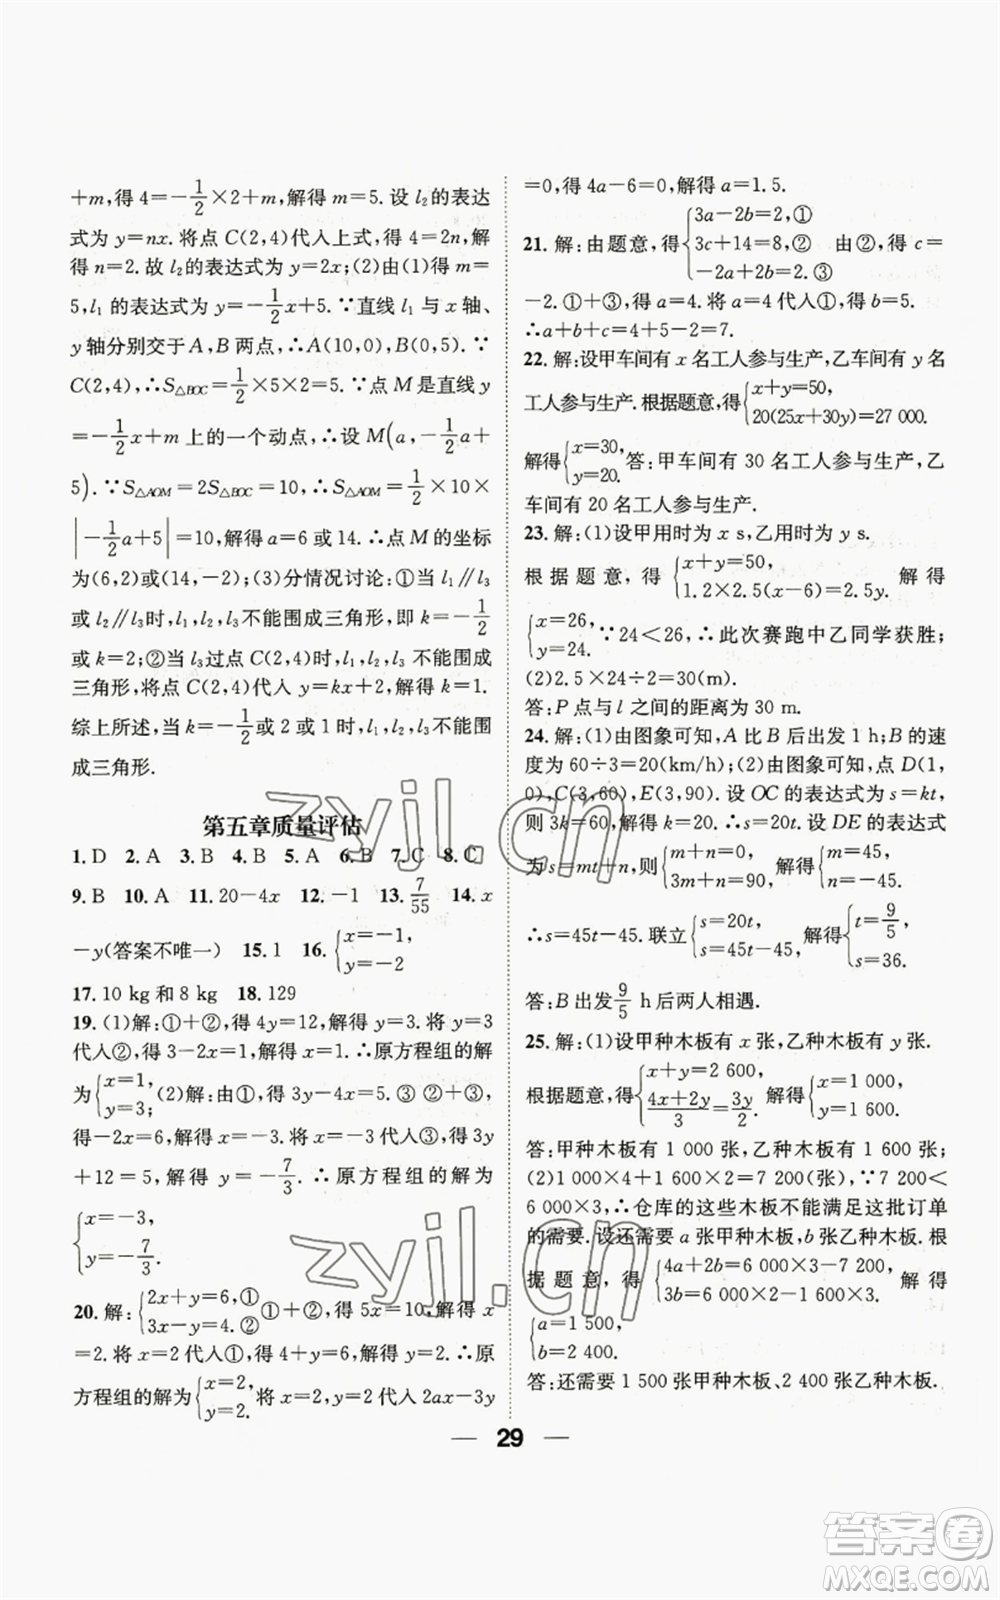 +m,得 4=-1/2×2+m,解得 m=5. 设 l₂的表达
式为 y=nx. 将点 C(2,4)代人上式,得 4=2n,解
得 n=2. 故 l₂的表达式为 y=2x;(2)由(1)得 m=
5,l₁ 的表达式为 y=-1/2x+5. ∵直线 l₁ 与 x 轴、
y 轴分别交于 A,B 两点,∴A(10,0),B(0,5). ∵
C(2,4),∴S△BOC=1/2×5×2=5. ∵点 M 是直线 y
=-1/2x+m 上的一个动点,∴设 M(a,-1/2a+
5). ∵S△AOM=2S△BOC=10,∴S△AOM=1/2×10×
|-1/2a+5|=10,解得 a=6 或 14. ∴点 M 的坐标
为(6,2)或(14,-2);(3)分情况讨论:①当 l₁∥l₃
或 l₂∥l₃时,l₁,l₂,l₃不能围成三角形,即 k=-1/2
或 k=2;②当 l₃过点 C(2,4)时,l₁,l₂,l₃不能围成
三角形,将点 C(2,4)代人 y=kx+2,解得 k=1.
综上所述,当 k=-1/2或 2 或 1 时,l₁,l₂,l₃不能围
成三角形.
第五章质量评估
1. D 2. A 3. B 4. B 5. A 6. B 7. C 8. C
9. B 10. A 11. 20-4x 12. -1 13. 7/55 14. x
-y(答案不唯一) 15. 1 16. {x=-1, y=-2
17. 10 kg 和 8 kg 18. 129
19. (1)解:①+②,得 4y=12,解得 y=3. 将 y=3
代人②,得 3-2x=1,解得 x=1. ∴原方程组的解
为{x=1, y=3; (2)解:由①,得 3y-4x=5. ③ ②+③,得
-2x=6,解得 x=-3. 将 x=-3 代人③,得 3y
+12=5,解得 y=-7/3. ∴原方程组的解为
{x=-3, y=-7/3.
20. 解:{2x+y=6,① 3x-y=4.② ①+②,得 5x=10,解得 x
=2. 将 x=2 代人①,得 4+y=6,解得 y=2. ∴原
方程组的解为{x=2, y=2. 将 x=2,y=2 代人 2ax-3y
=0,得 4a-6=0,解得 a=1.5.
21. 解:由题意,得{3a-2b=2,① 3c+14=8,② -2a+2b=2.③ 由②,得 c=
-2. ①+③,得 a=4. 将 a=4 代人①,得 b=5.
∴a+b+c=4+5-2=7.
22. 解:设甲车间有 x 名工人参与生产,乙车间有 y 名
工人参与生产. 根据题意,得{x+y=50, 20(25x+30y)=27 000.
解得{x=30, y=20. 答:甲车间有 30 名工人参与生产,乙
车间有 20 名工人参与生产.
23. 解:(1)设甲用时为 x s,乙用时为 y s.
根据题意,得{x+y=50, 1.2×2.5(x-6)=2.5y. 解得
{x=26, y=24. ∵24<26,∴此次赛跑中乙同学获胜;
(2)2.5×24÷2=30(m).
答:P 点与 l 之间的距离为 30 m.
24. 解:(1)由图象可知,A 比 B 后出发 1 h;B 的速
度为 60÷3=20(km/h);(2)由图象可知,点 D(1,
0),C(3,60),E(3,90). 设 OC 的表达式为 s=kt,
则 3k=60,解得 k=20. ∴s=20t. 设 DE 的表达式
为 s=mt+n,则{m+n=0, 3m+n=90. 解得{m=45, n=-45.
∴s=45t-45. 联立{s=20t, s=45t-45. 解得{t=9/5, s=36.
答:B 出发9/5 h后两人相遇.
25. 解:(1)设甲种木板有 x 张,乙种木板有 y 张.
根据题意,得{x+y=2 600, (4x+2y)/3=3y/2. 解得{x=1 000, y=1 600.
答:甲种木板有 1 000 张,乙种木板有 1 600 张;
(2)1 000×4+1 600×2=7 200(张),∵7 200<
6 000×3,∴仓库的这些木板不能满足这批订单
的需要. 设还需要 a 张甲种木板,b 张乙种木板. 根
据题意,得{4a+2b=6 000×3-7 200, 3b=6 000×2-3×1 600. 解得
{a=1 500, b=2 400.
答:还需要 1 500 张甲种木板、2 400 张乙种木板.
29
zyjl.cn
zyjl.cn
答案圈
MXQE.COM